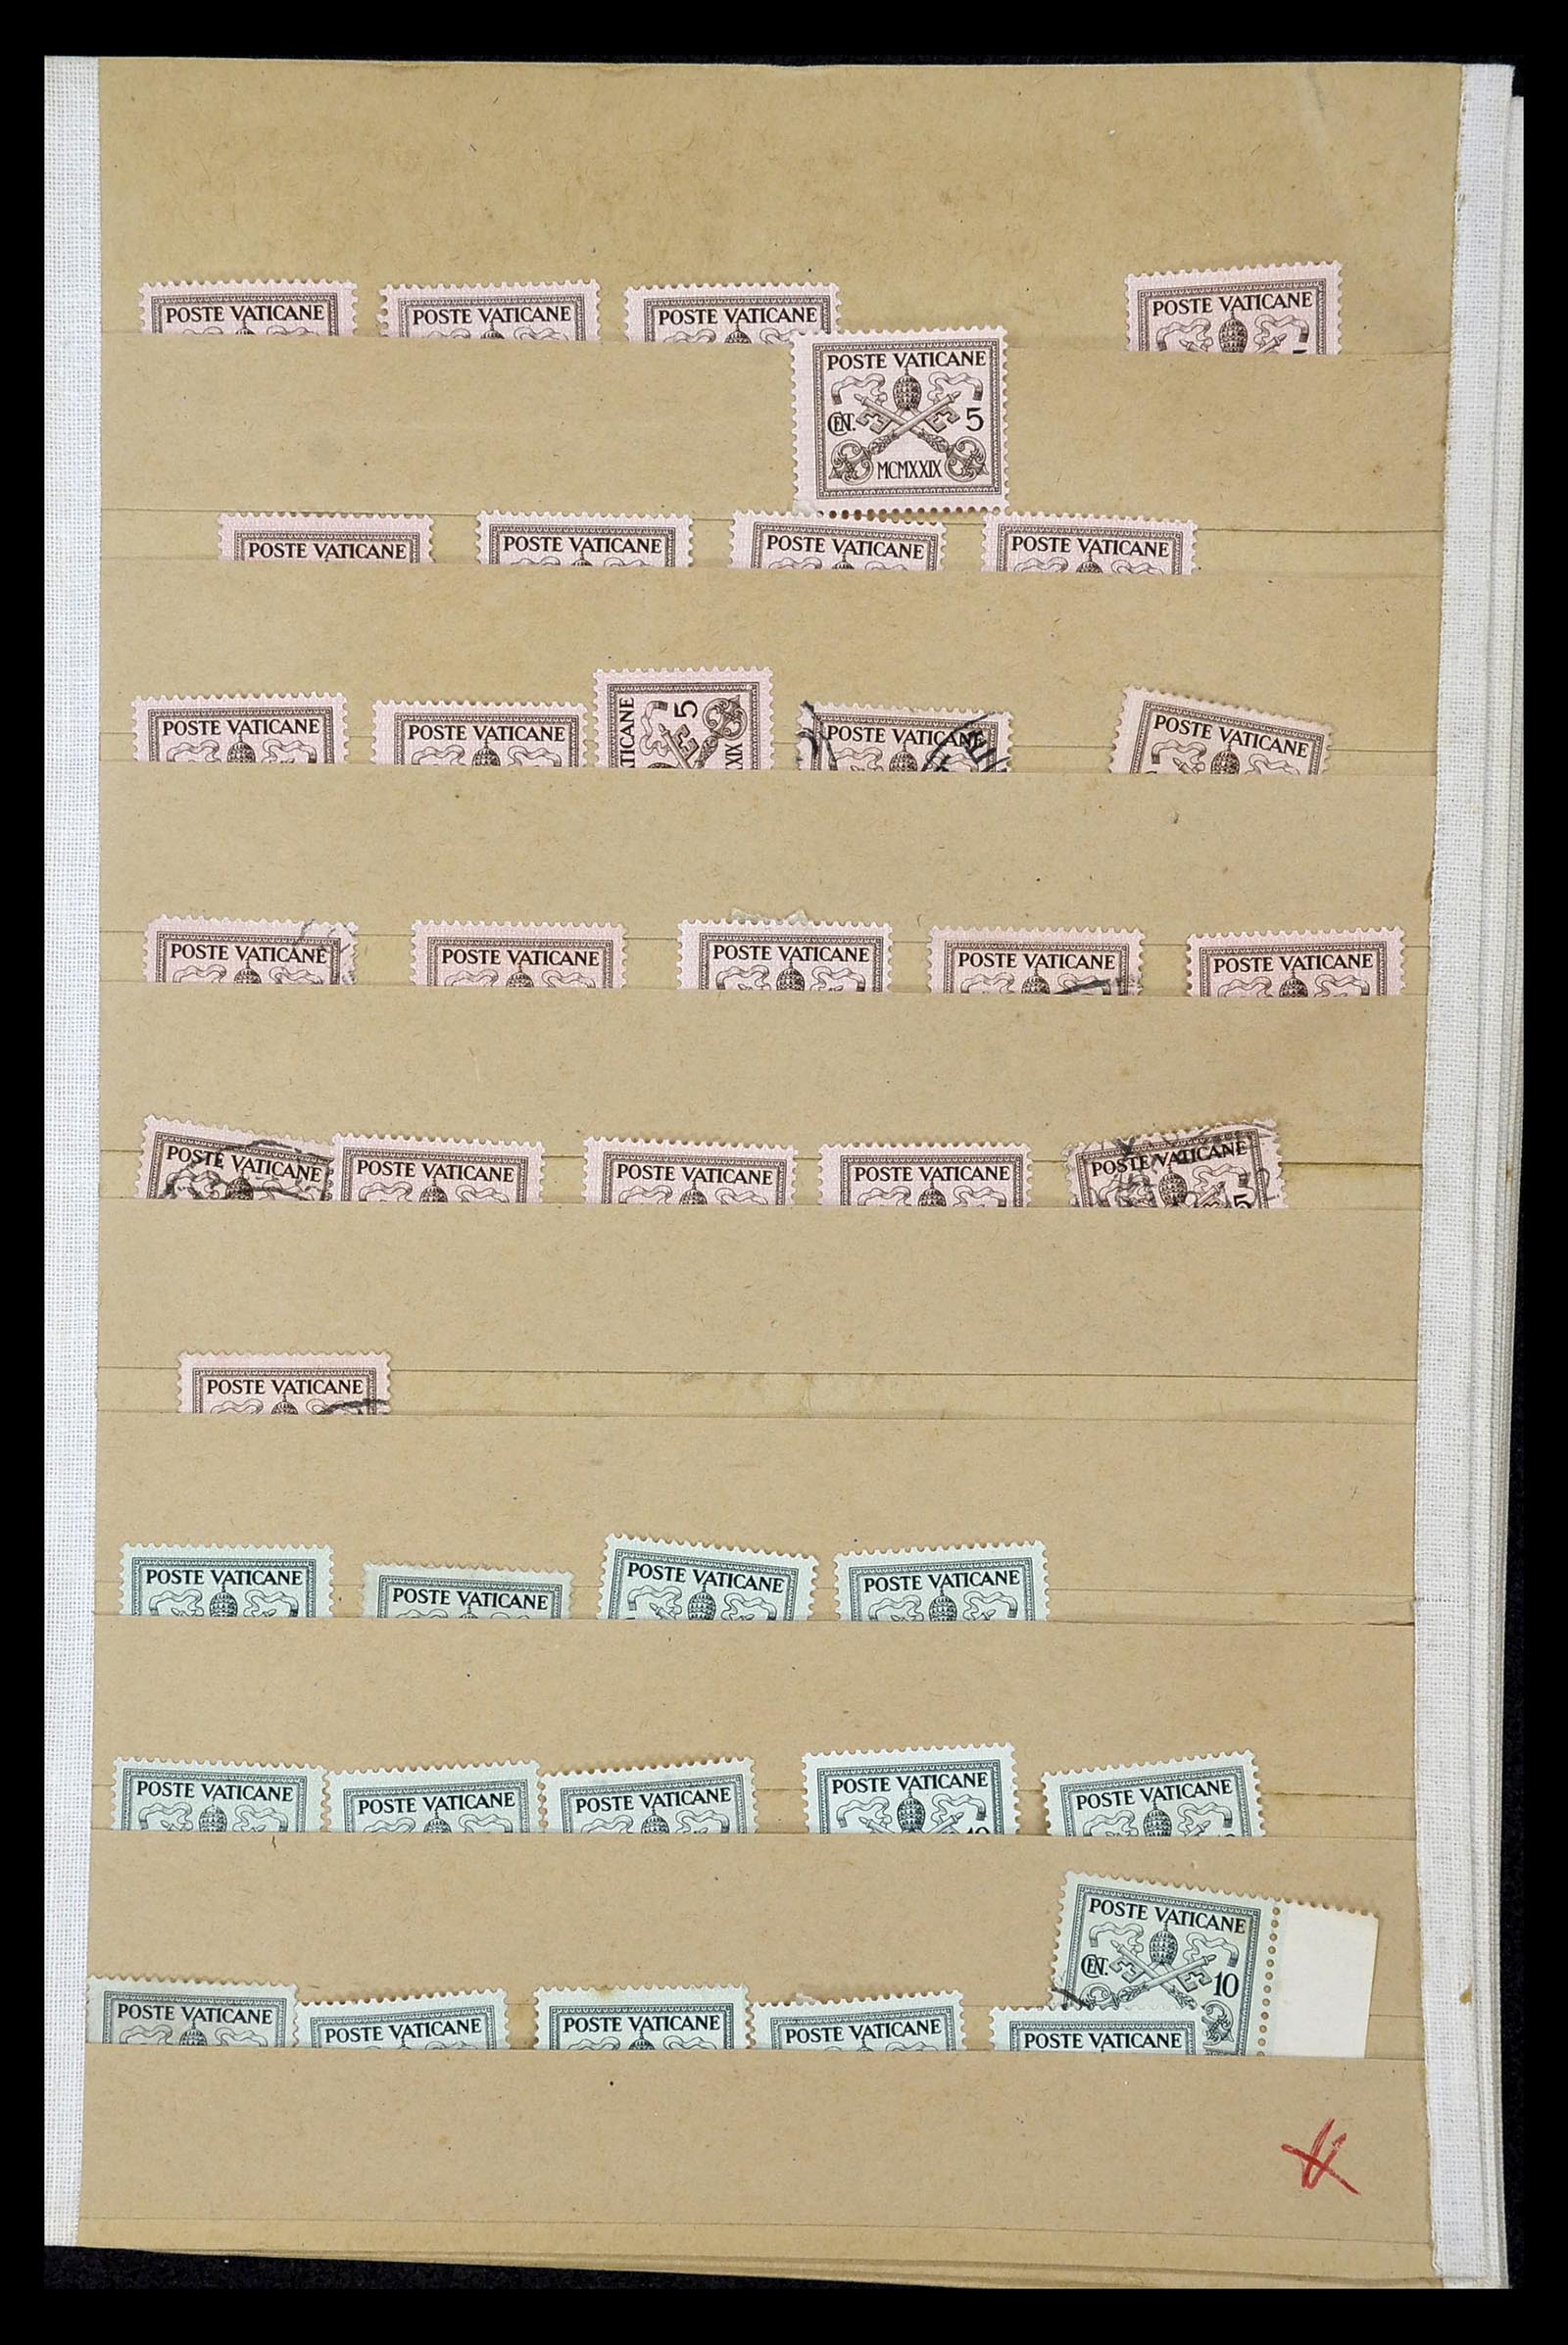 POSTE VATICANE
POSTE VATICANE
POSTE VATICANE
POSTE VATICANE
POSTE VATICANE
CEN. 5
MCMXXIX
POSTE VATICANE
POSTE VATICANE
POSTE VATICANE
POSTE VATICANE
POSTE VATICANE
POSTE VATICANE
ATICANE
5
XIX
POSTE VATICANE
POSTE VATICANE
POSTE VATICANE
POSTE VATICANE
POSTE VATICANE
POSTE VATICANE
POSTE VATICANE
POSTE VATICANE
POSTE VATICANE
POSTE VATICANE
POSTE VATICANE
POSTE VATICANE
5
POSTE VATICANE
POSTE VATICANE
POSTE VATICANE
POSTE VATICANE
POSTE VATICANE
POSTE VATICANE
POSTE VATICANE
POSTE VATICANE
POSTE VATICANE
10
POSTE VATICANE
POSTE VATICANE
CEN. 10
POSTE VATICANE
POSTE VATICANE
POSTE VATICANE
POSTE VATICANE
POSTE VATICANE